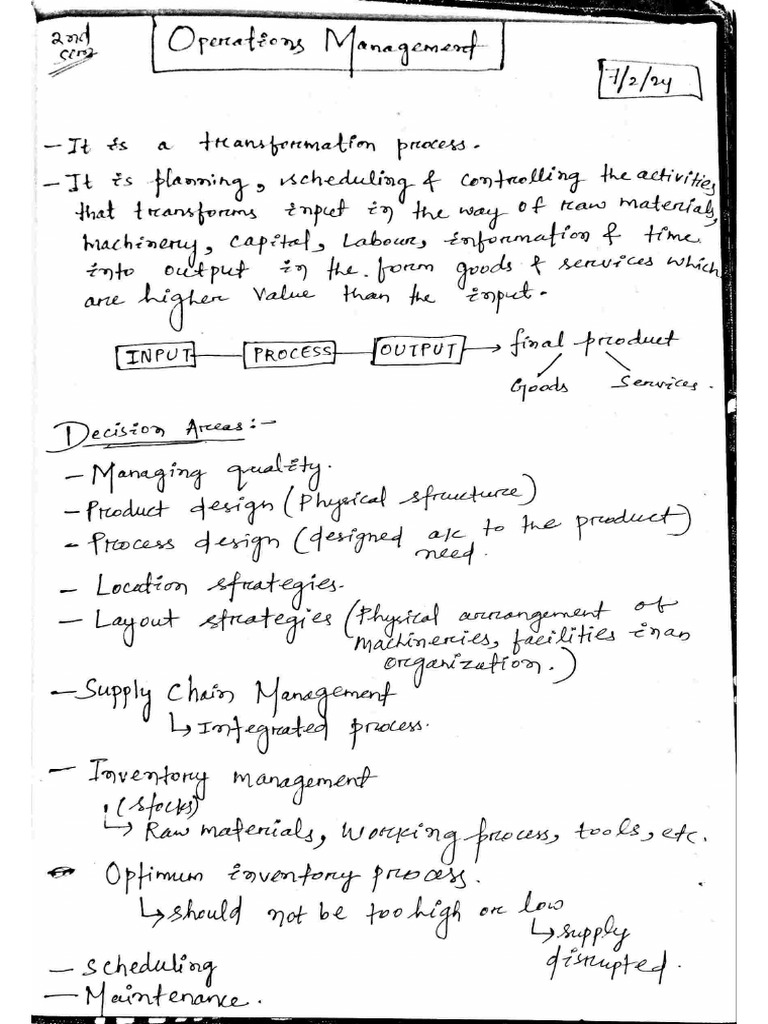 2nd
sem
Operations Management
7/2/24
- It is a transformation process.
- It is planning, scheduling & controlling the activities
that transforms input in the way of raw materials,
machinery, capital, Labour, information & time
into output in the form goods & services which
are higher value than the input.
INPUT PROCESS OUTPUT → final product
Goods Services.
Decision Areas:-
- Managing quality.
- Product design (Physical structure)
- Process design (designed a/c to the product)
need.
- Location strategies.
- Layout strategies (Physical arrangement of
machineries, facilities in an
organization.)
- Supply Chain Management
↳ Integrated process.
- Inventory management
(stocks)
↳ Raw materials, working process, tools, etc.
- Optimum inventory process.
↳ should not be too high or low
↳ supply
disrupted.
- Scheduling
- Maintenance.